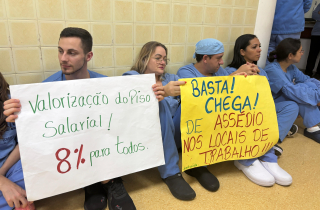 Valorização do Piso
Salarial!
8% para todos.
BASTA!
CHEGA!
DE ASSÉDIO
NOS LOCAIS DE
TRABALHO!!